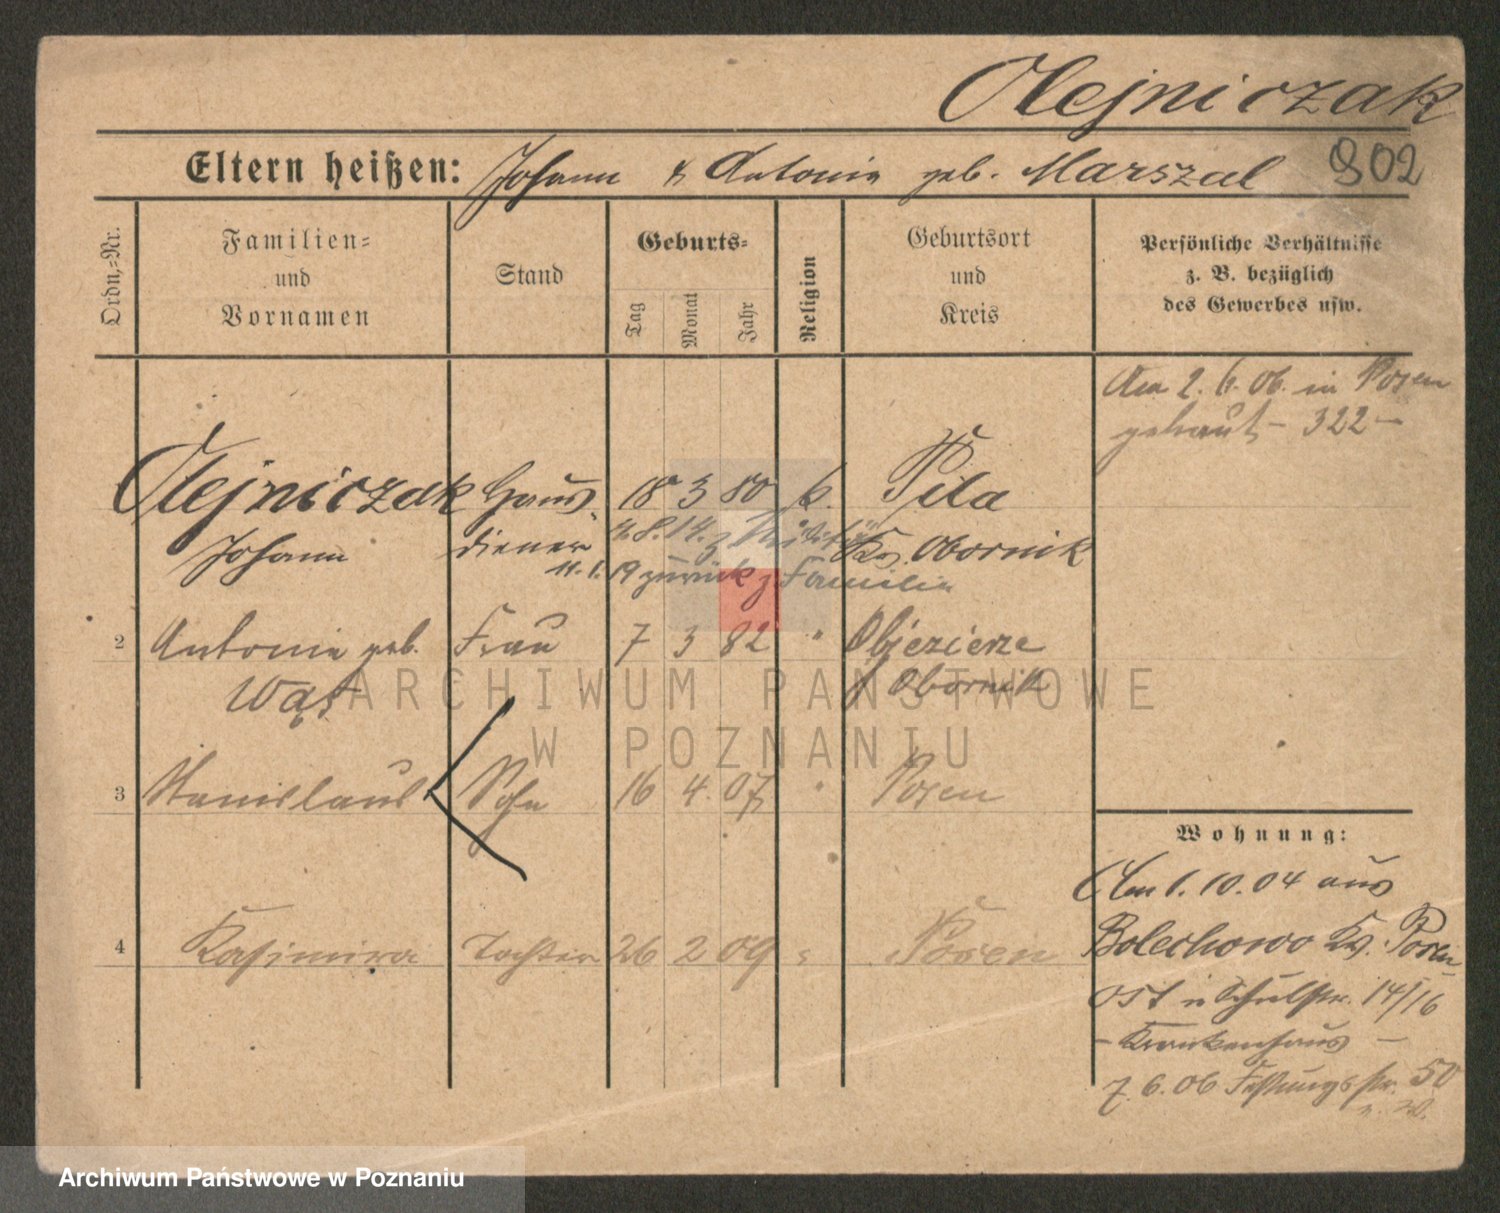 Olejniczak
Eltern heißen: Johann & Antonie geb. Marszal 902
Ordn.-Nr.
Familien-
und
Vornamen
Stand
Geburts-
Tag Monat Jahr
Religion
Geburtsort
und
Kreis
Persönliche Verhältnisse
z. B. bezüglich
des Gewerbes usw.
Am 2. 6. 06. in Posen
getraut - 322 -
Olejniczak Haus- 18 3 80 k. Pila
Johann diener 4. 8. 14. z. Militär Kr. Obornik
11. 1. 19 zurück z. Familie
2 Antonie geb. Frau 7 3 82 " Objezierze
Wąs Obornik
3 Stanislaus Sohn 16 4. 07 " Posen
4 Kasimira Tochter 26 2 09 " Posen
Wohnung:
Am 1. 10. 04 aus
Bolechowo Kr. Posen
Ost n Schulstr. 14/16
- Krankenhaus -
7. 6. 06 Festungsstr. 50
ARCHIWUM PAŃSTWOWE
W POZNANIU
Archiwum Państwowe w Poznaniu